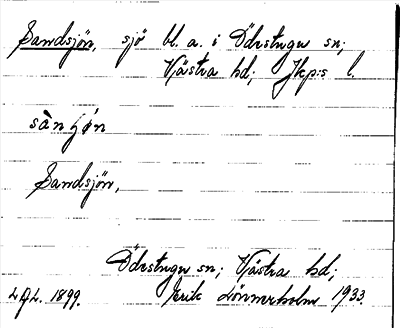 Sandsjön, sjö bl. a. i Ödestugu sn;
Västra hd; Jkp:s l.
sàn ʃön
Sandsjön,
Ödestugu sn; Västra hd;
LAL. 1899. Erik Lönnerholm 1933.